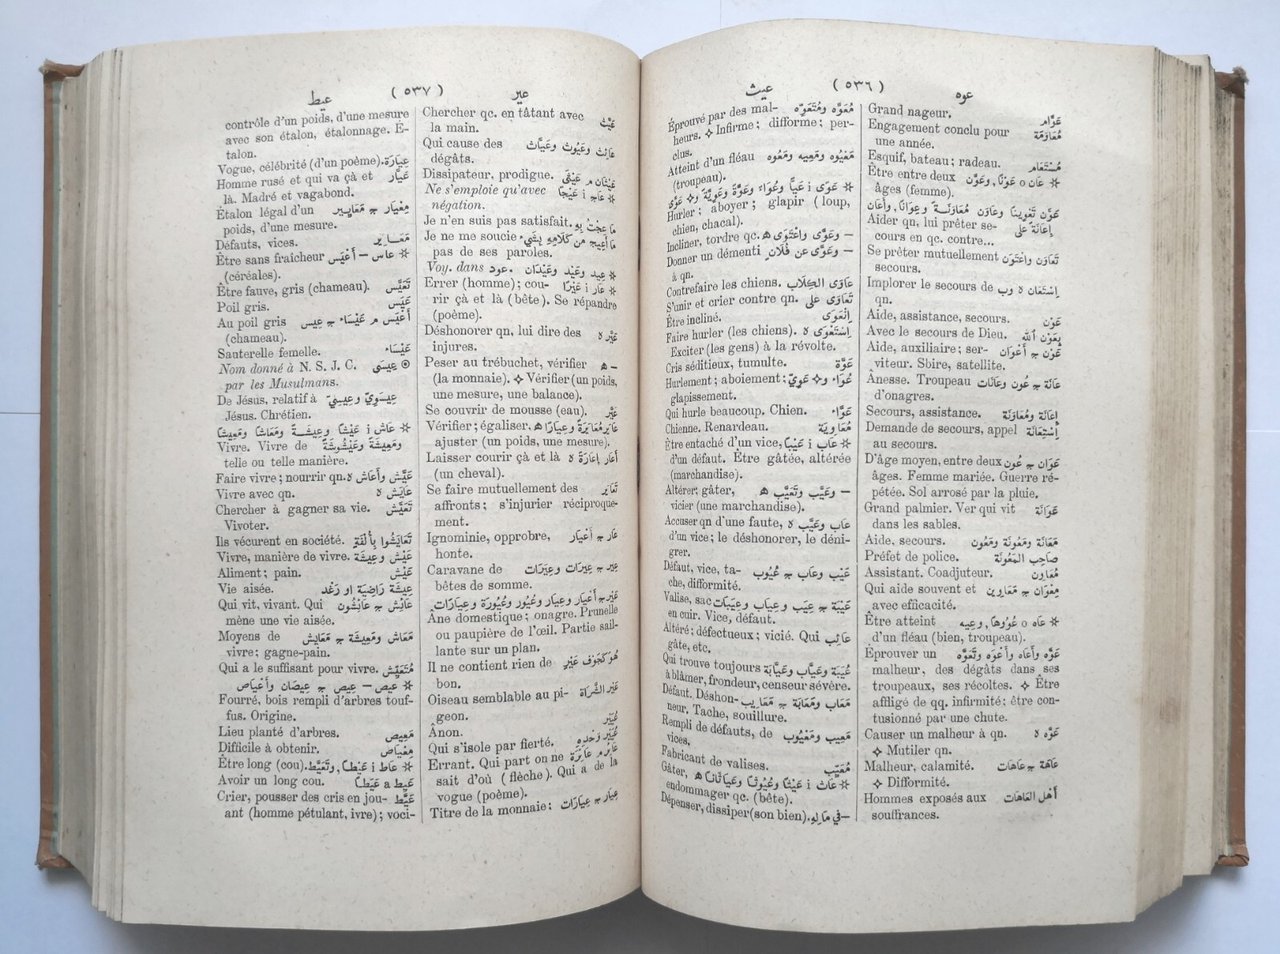 عوه ( ٥٣٦ ) عيث
Grand nageur. عَوَّام
Engagement conclu pour مُعَاوَمَة
une année.
Esquif, bateau; radeau. مُسْتَعَام
Être entre deux * عَان o عَوْنًا, وعَوَّن
âges (femme).
عَوَّن تَعْوِينًا وعَاوَن مُعَاوَنَةً وعِوَانًا, وأَعَان
Aider qn, lui prêter se- إِعَانَة على
cours en qc. contre...
Se prêter mutuellement تَعَاوَن واعْتَوَن
secours.
Implorer le secours de إِسْتَعَان ه وب
qn.
Aide, assistance, secours. عَوْن
Avec le secours de Dieu. بِعَوْن ٱللّه
Aide, auxiliaire; ser- عَوْن ج أَعْوَان
viteur. Sbire, satellite.
Ânesse. Troupeau عَانَة ج عُون وعَانَات
d'onagres.
Secours, assistance. إِعَانَة ومُعَاوَنَة
Demande de secours, appel إِسْتِعَانَة
au secours.
D'âge moyen, entre deux عَوَان ج عُون
âges. Femme mariée. Guerre ré-
pétée. Sol arrosé par la pluie.
Grand palmier. Ver qui vit عَوَانَة
dans les sables.
Aide, secours. مَعَانَة ومَعُونَة ومَعُون
Préfet de police. صَاحِب المَعُونَة
Assistant. Coadjuteur. مُعَاوِن
Qui aide souvent et مِعْوَان ج مَعَاوِين
avec efficacité.
Être atteint * عَاه o عُوُوهًا, وعِيه
d'un fléau (bien, troupeau).
Éprouver un عَوَّه وأَعَاه وأَعْوَه وتَعَوَّه
malheur, des dégâts dans ses
troupeaux, ses récoltes. ❖ Être
affligé de qq. infirmité; être con-
tusionné par une chute.
Causer un malheur à qn. عَوَّه ه
❖ Mutiler qn.
Malheur, calamité. عَاهَة ج عَاهَات
❖ Difformité.
Hommes exposés aux أَهْل العَاهَات
souffrances.
Éprouvé par des mal- مُعَوَّه ومُتَعَوِّه
heurs. ❖ Infirme; difforme; per-
clus.
Atteint d'un fléau مَعْيُوه ومَعِيه ومَعُوه
(troupeau).
* عَوَى i عَيًّا وعُوَاء وعَوَّةً وعَوِيَّةً و❖ عَوَّى
Hurler; aboyer; glapir (loup,
chien, chacal).
Incliner, tordre qc. – وعَوَّى واعْتَوَى ه
Donner un démenti – وعَوَّى عن فُلَان
à qn.
Contrefaire les chiens. عَاوَى الكِلَاب
S'unir et crier contre qn. تَعَاوَى على
Être incliné. إِنْعَوَى
Faire hurler (les chiens). إِسْتَعْوَى ه
Exciter (les gens) à la révolte.
Cris séditieux, tumulte. عَوَّة
Hurlement; aboiement; عُوَاء و❖ عَوِيّ
glapissement.
Qui hurle beaucoup. Chien. عَوَّاء
Chienne. Renardeau. مُعَاوِيَة
Être entaché d'un vice, * عَاب i عَيْبًا
d'un défaut. Être gâtée, altérée
(marchandise).
Altérer; gâter, – وعَيَّب وتَعَيَّب ه
vicier (une marchandise).
Accuser qn d'une faute, عَاب وعَيَّب ه
d'un vice; le déshonorer, le déni-
grer.
Défaut, vice, ta- عَيْب وعَاب ج عُيُوب
che, difformité.
Valise, sac عَيْبَة ج عِيَب وعِيَاب وعَيْبَات
en cuir. Vice, défaut.
Altéré; défectueux; vicié. Qui عَائِب
gâte, etc.
Qui trouve toujours عُيَبَة وعَيَّاب وعَيَّابَة
à blâmer, frondeur, censeur sévère.
Défaut. Déshon- مَعَاب ومَعَابَة ج مَعَايِب
neur. Tache, souillure.
Rempli de défauts, de مَعِيب ومَعْيُوب
vices.
Fabricant de valises. مُعَيِّب
Gâter, * عَاث i عَيْثًا وعُيُوثًا وعَيَثَانًا ه
endommager qc. (bête).
Dépenser, dissiper (son bien). – في مَالِهِ
عير ( ٥٣٧ ) عيط
Chercher qc. en tâtant avec عَيَّث
la main.
Qui cause des عَائِث وعَيُوث وعَيَّاث
dégâts.
Dissipateur, prodigue. عَيْثَان م عَيْثَى
Ne s'emploie qu'avec * عَاج i عَيْجًا
négation.
Je n'en suis pas satisfait. مَا عِجْتُ بِهِ
Je ne me soucie مَا أَعِيج من كَلَامِهِ بِشَيْء
pas de ses paroles.
Voy. dans عود. * عيد وعَيْد وعَيْدَان
Errer (homme); cou- * عَار i عَيْرًا
rir çà et là (bête). Se répandre
(poème).
Déshonorer qn, lui dire des عَيَّر ه
injures.
Peser au trébuchet, vérifier – ه
(la monnaie). ❖ Vérifier (un poids,
une mesure, une balance).
Se couvrir de mousse (eau). عَيَّر
Vérifier; égaliser, عَايَر مُعَايَرَةً وعِيَارًا ه
ajuster (un poids, une mesure).
Laisser courir çà et là أَعَار إِعَارَةً ه
(un cheval).
Se faire mutuellement des تَعَايَر
affronts; s'injurier réciproque-
ment.
Ignominie, opprobre, عَار ج أَعْيَار
honte.
Caravane de عِير ج عِيرَات وعِيَرَات
bêtes de somme.
عَيْر ج أَعْيَار وعِيَار وعُيُور وعُيُورَة وعِيَارَات
Âne domestique; onagre. Prunelle
ou paupière de l'œil. Partie sail-
lante sur un plan.
Il ne contient rien de هُو كَجَوْف عَيْر
bon.
Oiseau semblable au pi- عَيْر السَّرَاة
geon.
Ânon. عُيَيْر
Qui s'isole par fierté. عُيَيْر وَحْدِهِ
Errant. Qui part on ne عَائِر م عَائِرَة
sait d'où (flèche). Qui a de la
vogue (poème).
Titre de la monnaie; عِيَار ج عِيَارَات
contrôle d'un poids, d'une mesure
avec son étalon, étalonnage. É-
talon.
Vogue, célébrité (d'un poème). عِيَارَة
Homme rusé et qui va çà et عَيَّار
là. Madré et vagabond.
Étalon légal d'un مِعْيَار ج مَعَايِير
poids, d'une mesure.
Défauts, vices. مَعَايِر
Être sans fraîcheur * عَاس – أَعْيَس
(céréales).
Être fauve, gris (chameau). تَعَيَّس
Poil gris. عَيَس
Au poil gris أَعْيَس م عَيْسَاء ج عِيس
(chameau).
Sauterelle femelle. عَيْسَاء
Nom donné à N. S. J. C. ⊙ عِيسَى
par les Musulmans.
De Jésus, relatif à عِيسَوِيّ وعِيسِيّ
Jésus. Chrétien.
* عَاش i عَيْشًا وعِيشَةً ومَعَاشًا ومَعِيشًا
Vivre. Vivre de ومَعِيشَةً وعَيْشُوشَةً
telle ou telle manière.
Faire vivre; nourrir qn. عَيَّش وأَعَاش ه
Vivre avec qn. عَايَش ه
Chercher à gagner sa vie. تَعَيَّش
Vivoter.
Ils vécurent en société. تَعَايَشُوا بِأُلْفَةٍ
Vivre, manière de vivre. عَيْش وعِيشَة
Aliment; pain. عَيْش
Vie aisée. عِيشَة رَاضِيَة او رَغْد
Qui vit, vivant. Qui عَائِش ج عَائِشُون
mène une vie aisée.
Moyens de مَعَاش ومَعِيشَة ج مَعَايِش
vivre; gagne-pain.
Qui a le suffisant pour vivre. مُتَعَيِّش
* عيص – عِيص ج عِيصَان وأَعْيَاص
Fourré, bois rempli d'arbres touf-
fus. Origine.
Lieu planté d'arbres. مَعِيص
Difficile à obtenir. مِعْيَاص
Être long (cou). * عَاط i عَيْطًا, وتَعَيَّط
Avoir un long cou. عَيِط a عَيَطًا
Crier, pousser des cris en jou- عَيَّط
ant (homme pétulant, ivre); voci-